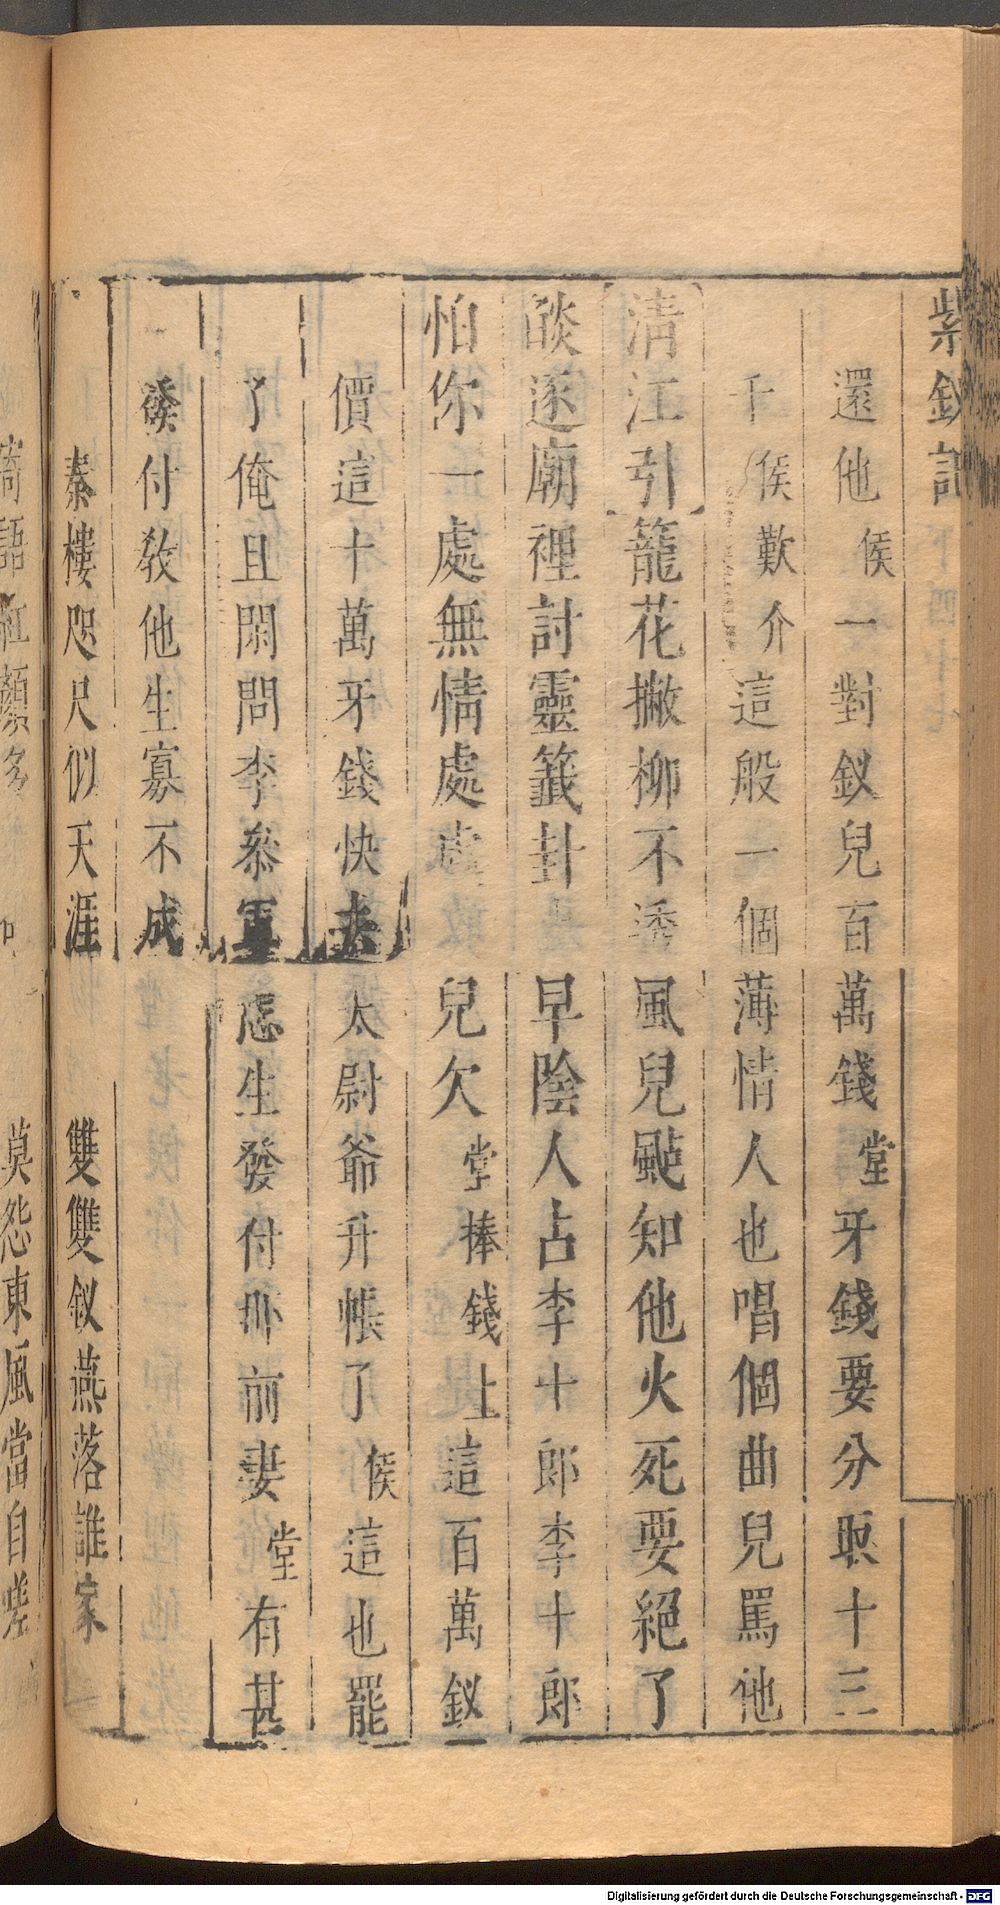 紫釵記
還他侯一對釵兒百萬錢堂牙錢要分取十三
千侯歎介這般一個薄情人也唱個曲兒罵他
清江引籠花撇柳不透風兒颭知他火死要絕了
燄逐廟裡討靈籤卦早陰人占李十郎李十郎
怕你一處無情處兒欠堂捧錢上這百萬釵
價這十萬牙錢快去太尉爺升帳了侯這也罷
了俺且閑問李叅軍恁生發付那前妻堂有甚
發付教他生寡不成
秦樓咫尺似天涯 雙雙釵燕落誰家
綺語紅顏多 莫怨東風當自嗟
Digitalisierung gefördert durch die Deutsche Forschungsgemeinschaft - DFG